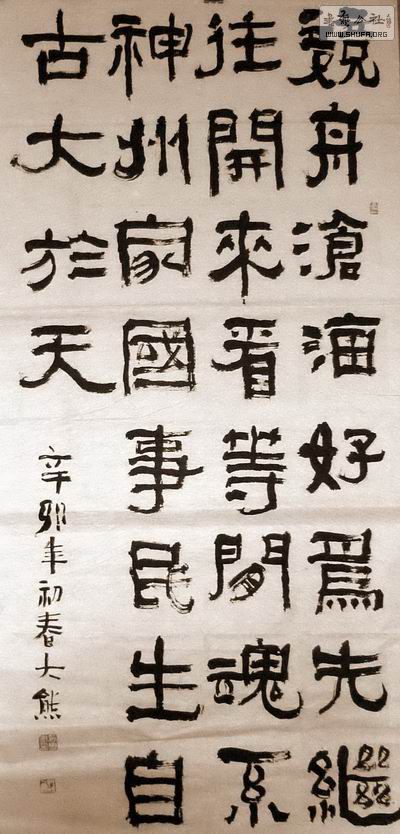 競舟滄海好爲先繼
往開來看等閒魂系
神州家國事民生自
古大於天
辛卯年初春大熊
公社
WWW.SHUFA.ORG